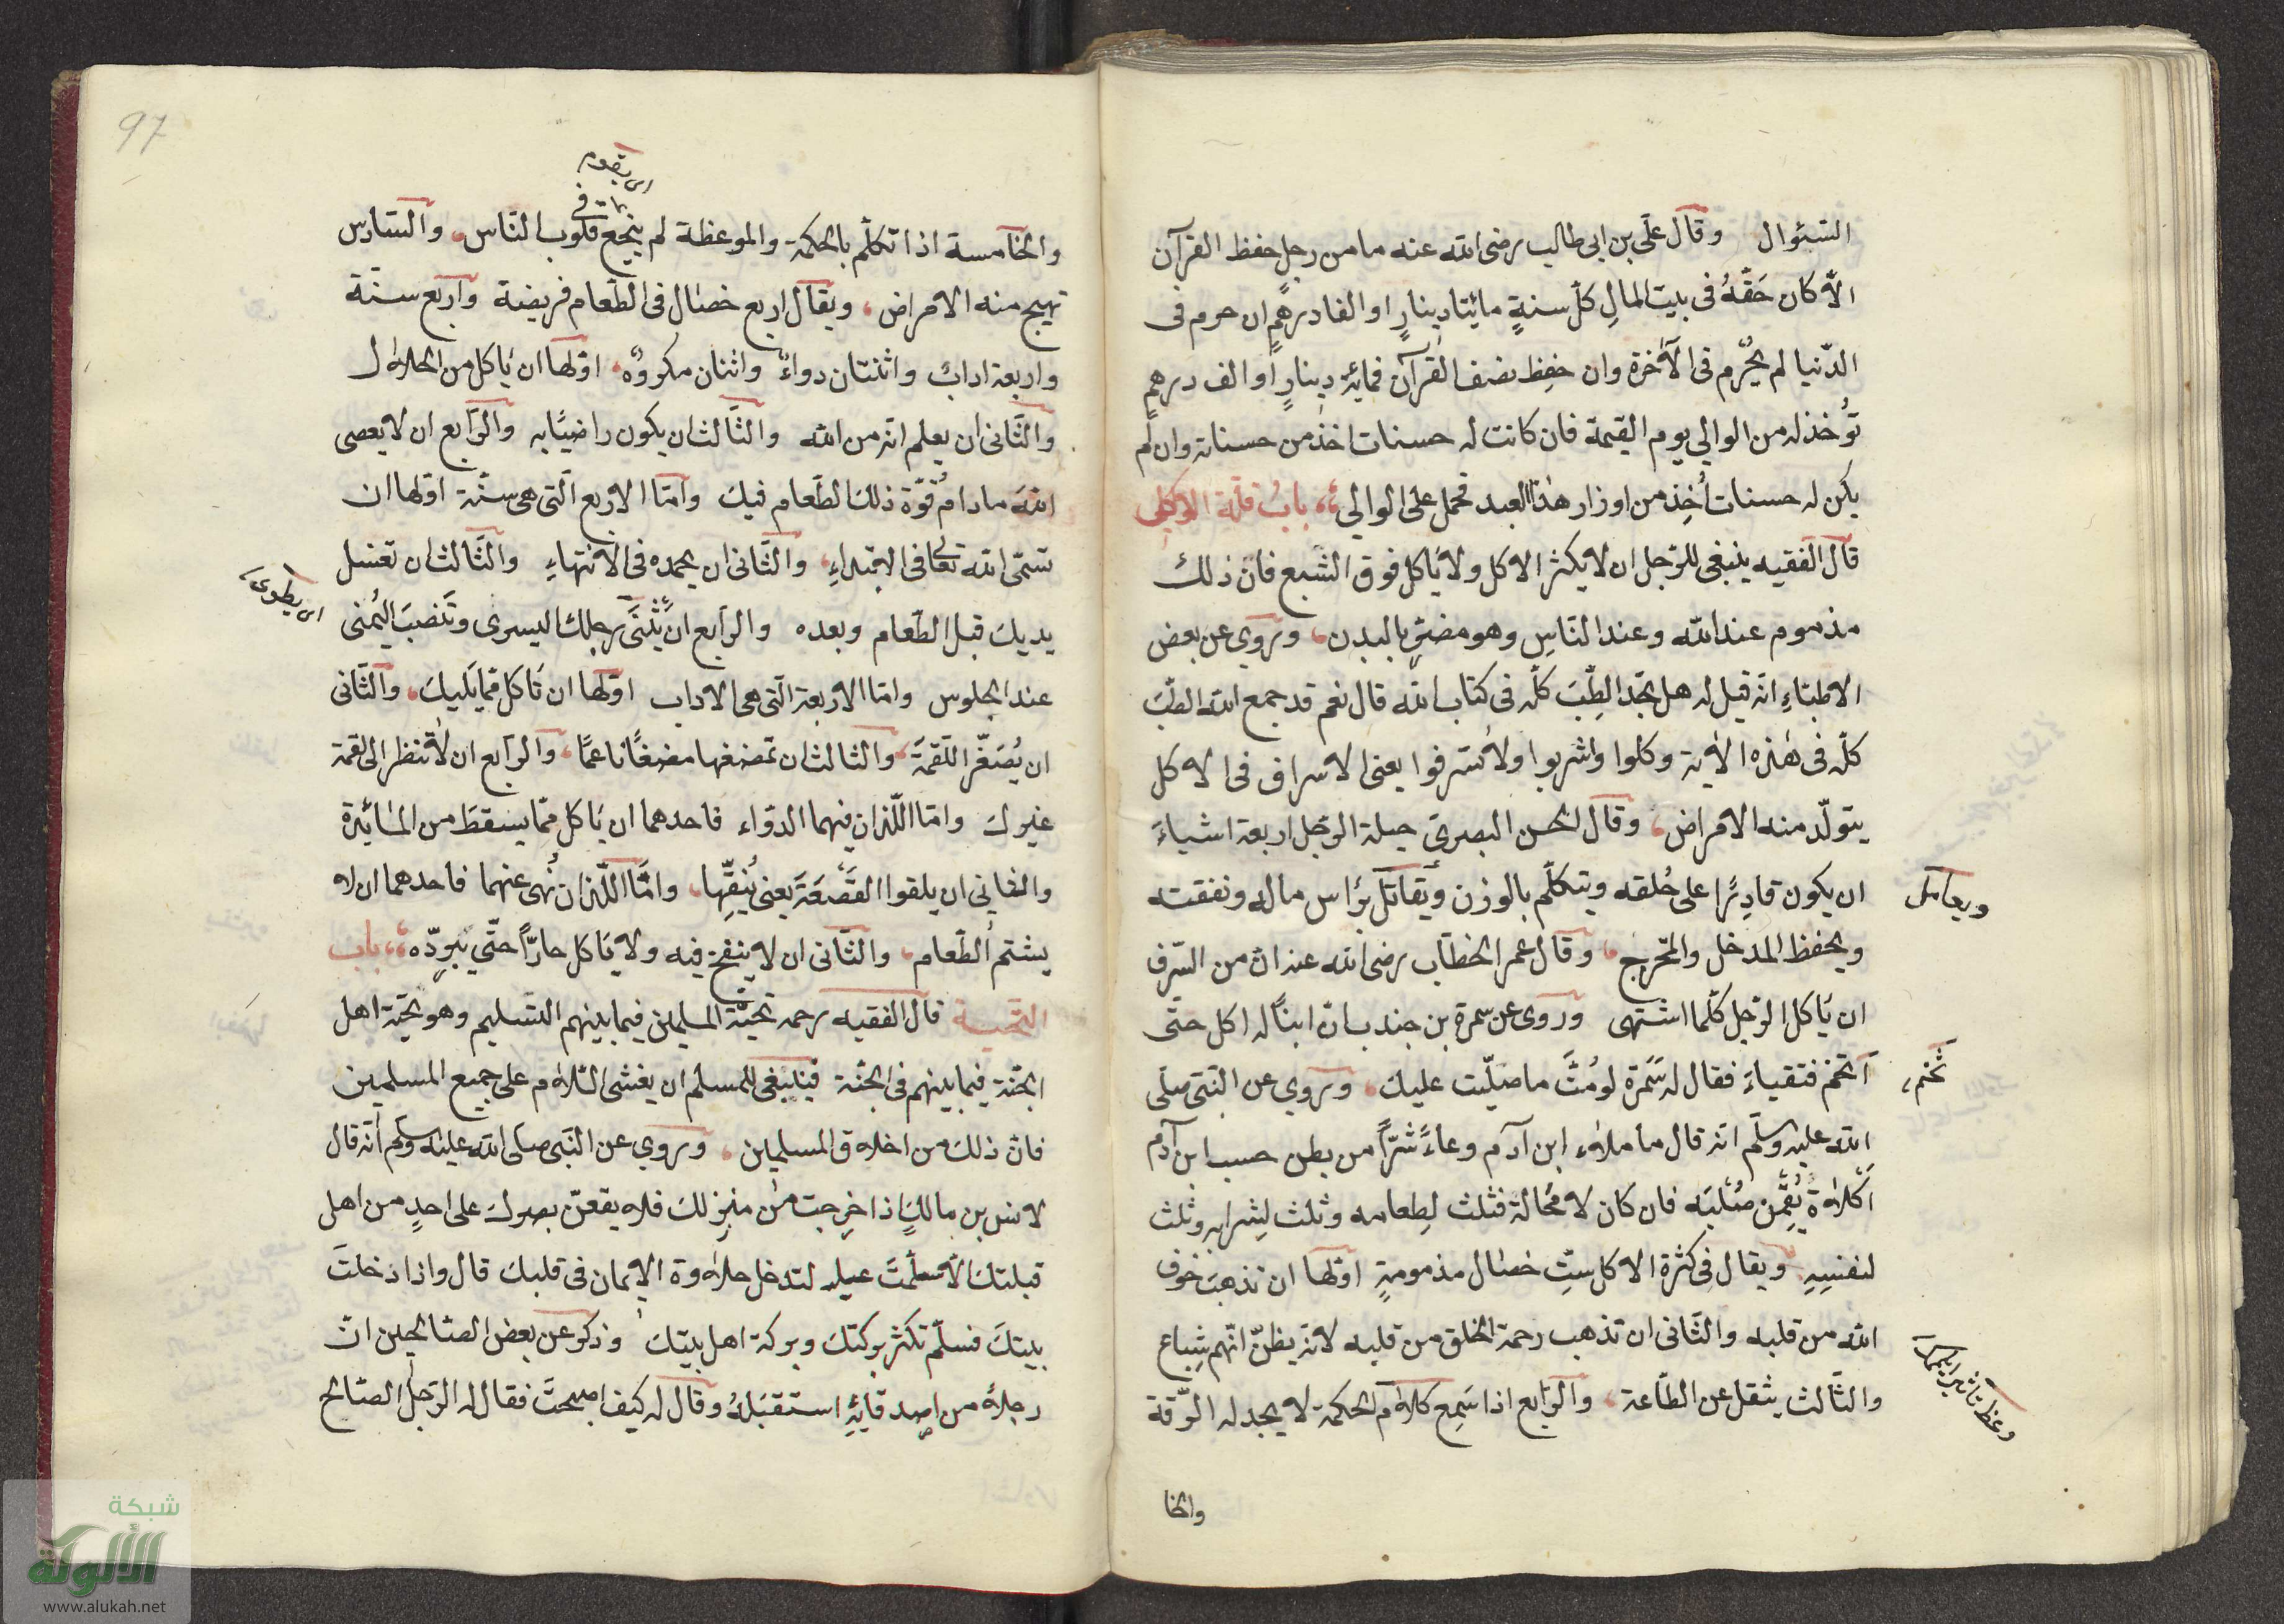 السئوال وقال علي بن ابي طالب رضى الله عنه ما من رجلٍ حفظ القرآن
الاّ كان حَقّهُ فى بيت المالِ كلّ سنةٍ مائيتا دينارٍ او الفا درهمٍ ان حرم فى
الدّنيا لم يُحْرم فى الآخرة وان حفِظ نصف القرآن فمائة دينارٍ او الف درهمٍ
تؤخذ له من الوالي يوم القيمة فان كانت له حسنات اخذ من حسناته وان لم
يكن له حسنات أُخِذ من اوزار هذا العبد فحمل على الوالي باب قلّة الاكل
قال الفقيه ينبغى للرّجل ان لا يكثر الاكل ولا يأكل فوق الشبع فانّ ذلك
مذموم عند الله وعند النّاسِ وهو مضرّ بالبدن وروي عن بعض
الاطبّاءِ انّه قيل له هل تجد الطِّبَّ كلّه فى كتاب الله قال نعم قد جمع الله الطّبّ
كلّه فى هذه الاية وكلوا واشربوا ولا تسرفوا يعنى الاسراف فى الاكل
يتولّد منه الامراض وقال الحسن البصرى حيلة الرّجل اربعة اشياءَ
ان يكون قادِرًا على خُلقه ويتكلّم بالوزن ويقاتل برأس ماله ونفقته
ويعامل
ويحفظ المدخل والمخرج وقال عمر الخطّاب رضى الله عنه انّ من السّرف
ان يأكل الرّجل كلّما اشتهى وروى عن سمرة بن جندب انّ ابنًا له اكل حتّى
اتخم فتقياءَ فقال له سَمُرة لو مُتَّ ما صلّيت عليك وروي عن النّبى صلّى
تخم
الله عليه وسلّم انّه قال ما ملاء ابن آدم وعاءً شرًّا من بطن حسب ابن آدم
اكلاة يُقِمْن صُلْبَه فان كان لا محالة فثلث لِطعامه وثلث لِشرابه وثلث
لنفسِهِ ويقال فى كثرة الاكل ستّ خصال مذمومةٍ اوّلها ان تذهبَ خوف
الله من قلبه والثّانى ان تذهب رحمة الخلق من قلبه لانّه يظنّ انّهم شِباع
والثّالث يثقل عن الطّاعة والرّابع اذا سَمِع كلام الحكمة لا يجد له الرّقة
والخا
97
والخامسة اذا تكلّم بالحكمة والموعظة لم ينجع فى قلوب النّاس والسّادس
تهيج منه الامراض ويقال اربع خصال فى الطّعام فريضة واربع سنّة
واربعة اداب واثنتان دواءٌ واثنان مكروهٌ اوّلها ان يأكل من الحلال
والثّانى ان يعلم انّه من الله والثّالث ان يكون راضيًا به والرّابع ان لا يعصى
الله ما دام قوّة ذلك الطّعام فيك وامّا الاربع الّتى هى سنّة اوّلها ان
تسمّى الله تعالى فى الابتداءِ والثّانى ان يحمده فى الانتهاءِ والثّالث ان تغسل
يديك قبل الطّعام وبعده والرّابع ان تثنى رجلك اليسرى وتنصبَ اليُمنى
عند الجلوس وامّا الاربعة الّتى هى الاداب اوّلها ان تأكل ممّا يليك والثّانى
ان يُصَغّر اللّقمةَ والثالث ان تمضغها مضغًا ناعمًا والرّابع ان لا تنظر الى لقمة
غيرك وامّا اللّذان فيهما الدّواء فاحدهما ان يأكل ممّا يسقط من المائدة
والثانى ان يلقوا القصْعَةَ يعنى يُنقِّها وامّا اللّذان نُهى عنهما فاحدهما ان لا
يشتم الطّعام والثّانى ان لا ينفخ فيه ولا يأكل حارًّا حتّي يُبرِدّه باب
التحيـة قال الفقيه رحمه تحيّة المسلمين فيما بينهم التّسليم وهو تحيّة اهل
الجنّة فيما بينهم فى الجنّة فينبغى للمسلم ان يفشى السّلام على جميع المسلمين
فانّ ذلك من اخلاق المسلمين وروي عن النّبى صلّى الله عليه وسلّم انّه قال
لانس بن مالكٍ اذا خرجت من منزلك فلا يقعنّ بصرك على احدٍ من اهل
قبلتك الاّ سلّمتَ عليه لتدخل حلاوة الايمان فى قلبك قال واذا دخلتَ
بيتكَ فسلّم تكثر بركتك وبركة اهل بيتك وذكر عن بعض الصّالحين انّ
رجلاً من اصدقائِهِ استقبَلهُ وقال له كيف اصبحتَ فقال له الرّجل الصّالح
شبكة
الألوكة
www.alukah.net